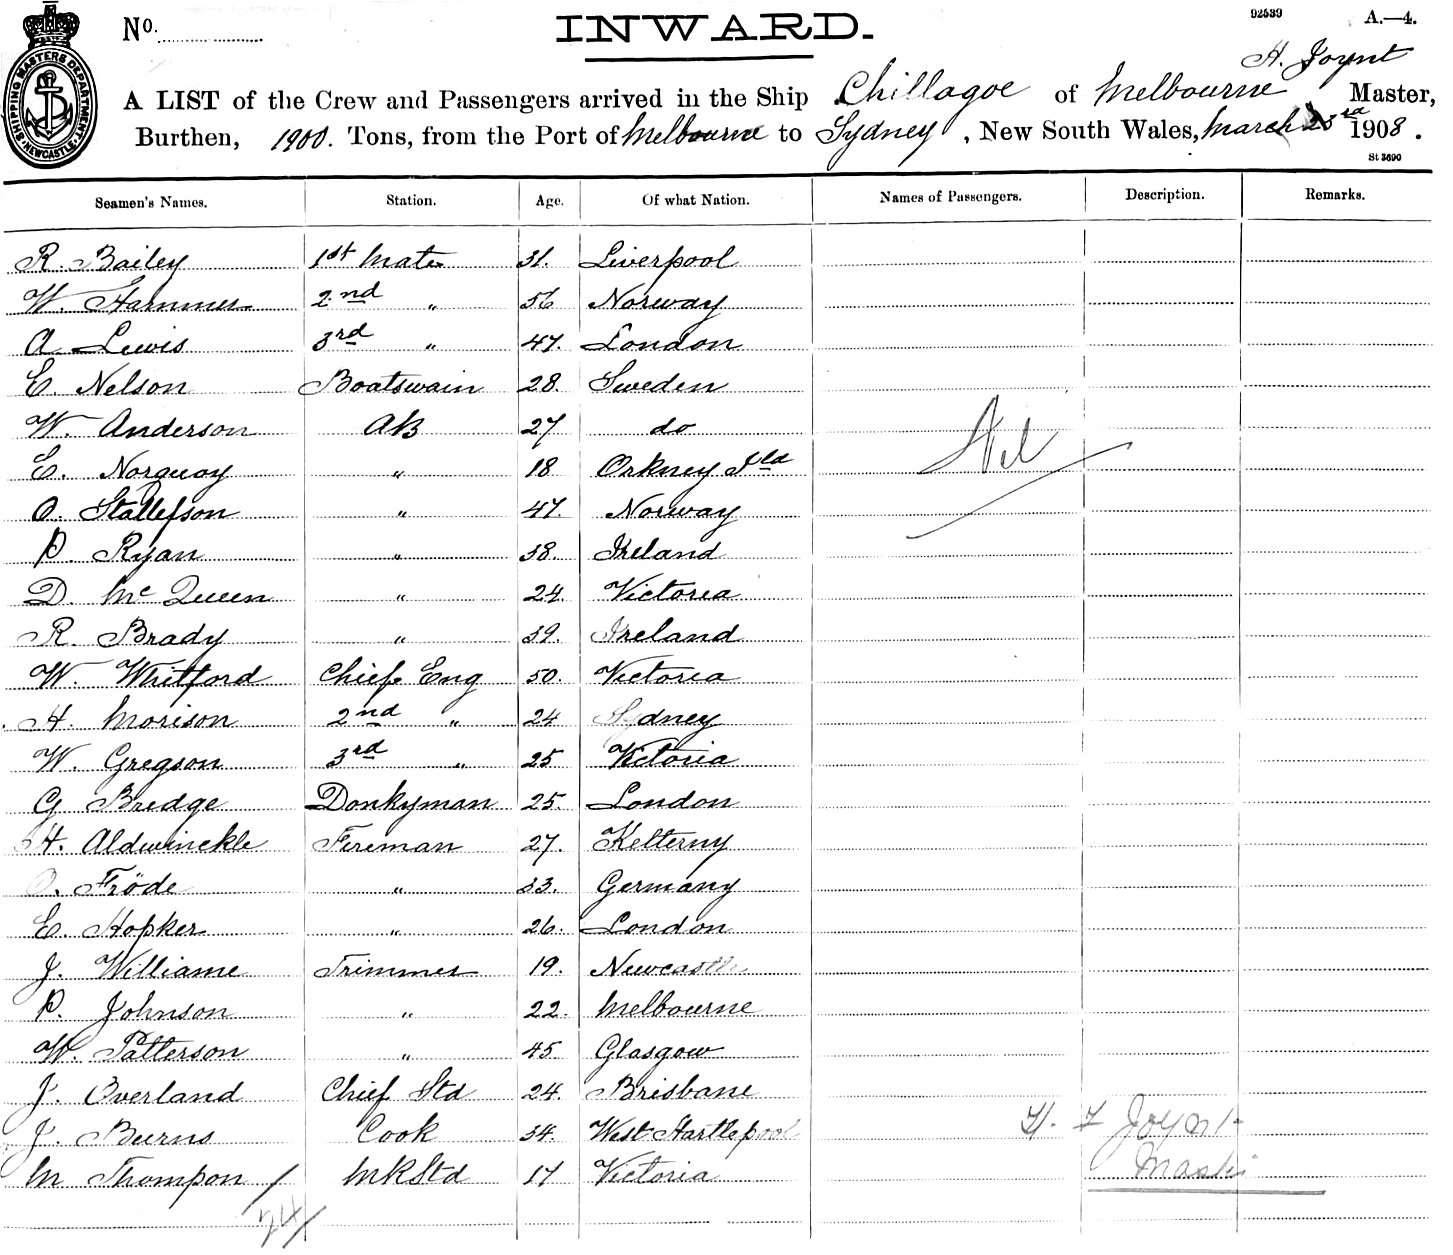 No.
INWARD.
92539
A.—4.
SHIPPING MASTERS DEPARTMENT
NEWCASTLE
H. Joynt
A LIST of the Crew and Passengers arrived in the Ship Chillagoe of Melbourne Master,
Burthen, 1900. Tons, from the Port of Melbourne to Sydney, New South Wales, March 23rd 1908.
St 3690
Seamen's Names. Station. Age. Of what Nation. Names of Passengers. Description. Remarks.
R. Bailey 1st Mate 31. Liverpool
W. Hammer 2nd " 56 Norway
A Lewis 3rd " 47. London
E. Nelson Boatswain 28. Sweden
W. Anderson AB 27 do
Nil
E. Norquoy " 18 Orkney Ild
O. Stallefson " 47. Norway
P. Ryan " 38. Ireland
D. McQueen " 24. Victoria
R. Brady " 39. Ireland
W. Whitford Chief Eng 50. Victoria
H. Morison 2nd " 24 Sydney
W. Gregson 3rd " 25 Victoria
G Bredge Donkyman 25. London
H. Aldwinckle Fireman 27. Kelterny
O. Fröde " 33. Germany
E. Hopker " 26. London
J. Williame Trimmer 19. Newcastle
P. Johnson " 22. Melbourne
W. Patterson " 45 Glasgow
J. Overland Chief Std 24. Brisbane
J. Burns Cook 34. West Hartlepool
H. F Joynt
M Thompson MRStd 17 Victoria
Master
24/